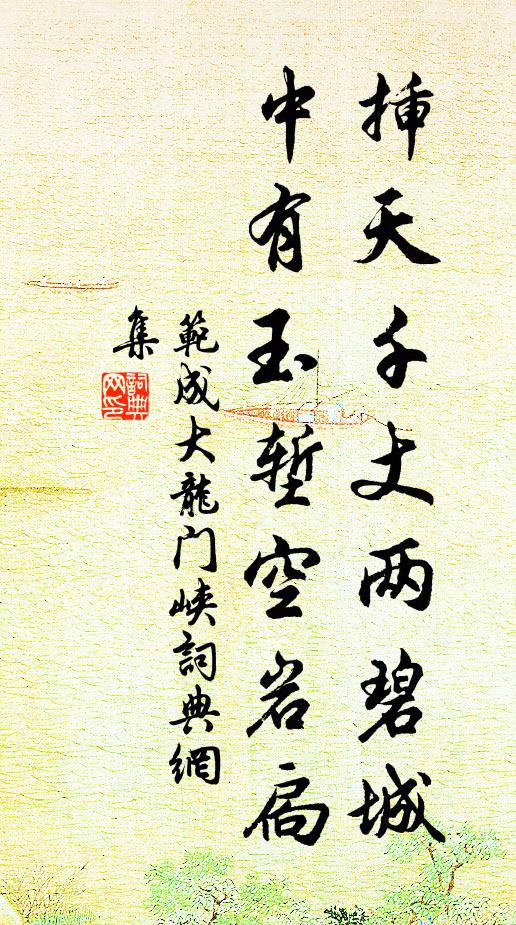 揷天千丈两碧城
中有玉堑空岩扃
範成大龍门峡詞典網
集
詞典
网印